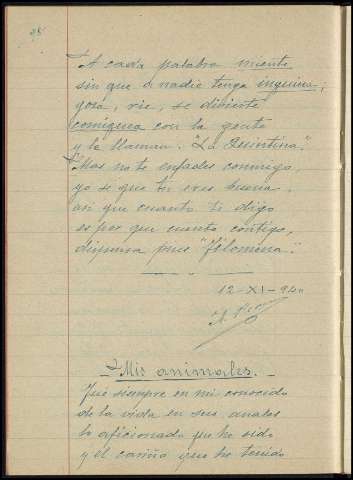 A cada palabra miente
sin que a nadie tenga inquina;
goza, rie, se divierte
comiquea con la gente
y la llaman. "La Quintina".
Mas no te enfades conmigo,
yo si que tu eres buena,
asi que cuanto ti digo
es por que cuento contigo,
dispensa pues "Filomena".
12-XI-940
Mis animales.
Fué siempre en mi conocido
de la vida en sus anales
lo aficionado que he sido
y el cariño que he tenido